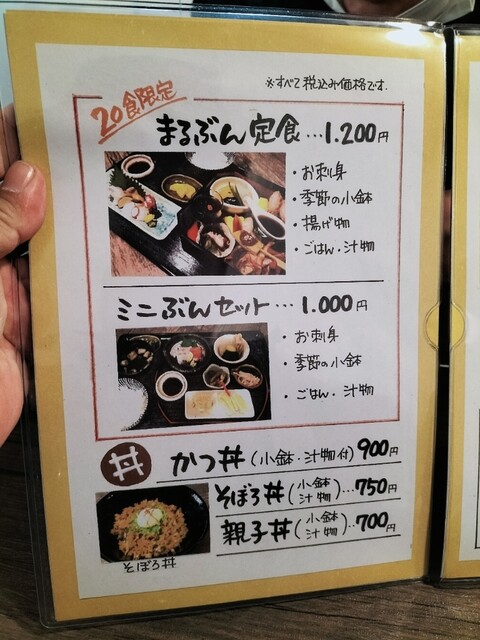 ※すべて税込み価格です.
20食限定
まるぶん定食…1.200円
・お刺身
・季節の小鉢
・揚げ物
・ごはん・汁物
ミニぶんセット…1.000円
・お刺身
・季節の小鉢
・ごはん・汁物
丼 かつ丼(小鉢・汁物付)900円
そぼろ丼(小鉢 汁物)…750円
親子丼(小鉢 汁物)…700円
そぼろ丼